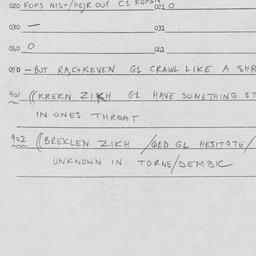 020 KOPS NIST/HEJR OUF C1 KOPSN
021 0
030 —
031
040 0
041
050 — BUT RACKEVEN G1 CRAWL LIKE A SHR
901 ((KREKN ZIKH G1 HAVE SOMETHING ST
IN ONES THROAT
902 ((BREKLEN ZIKH /QED GL HESITATE/
UNKNOWN IN TORNE/DEMBIC